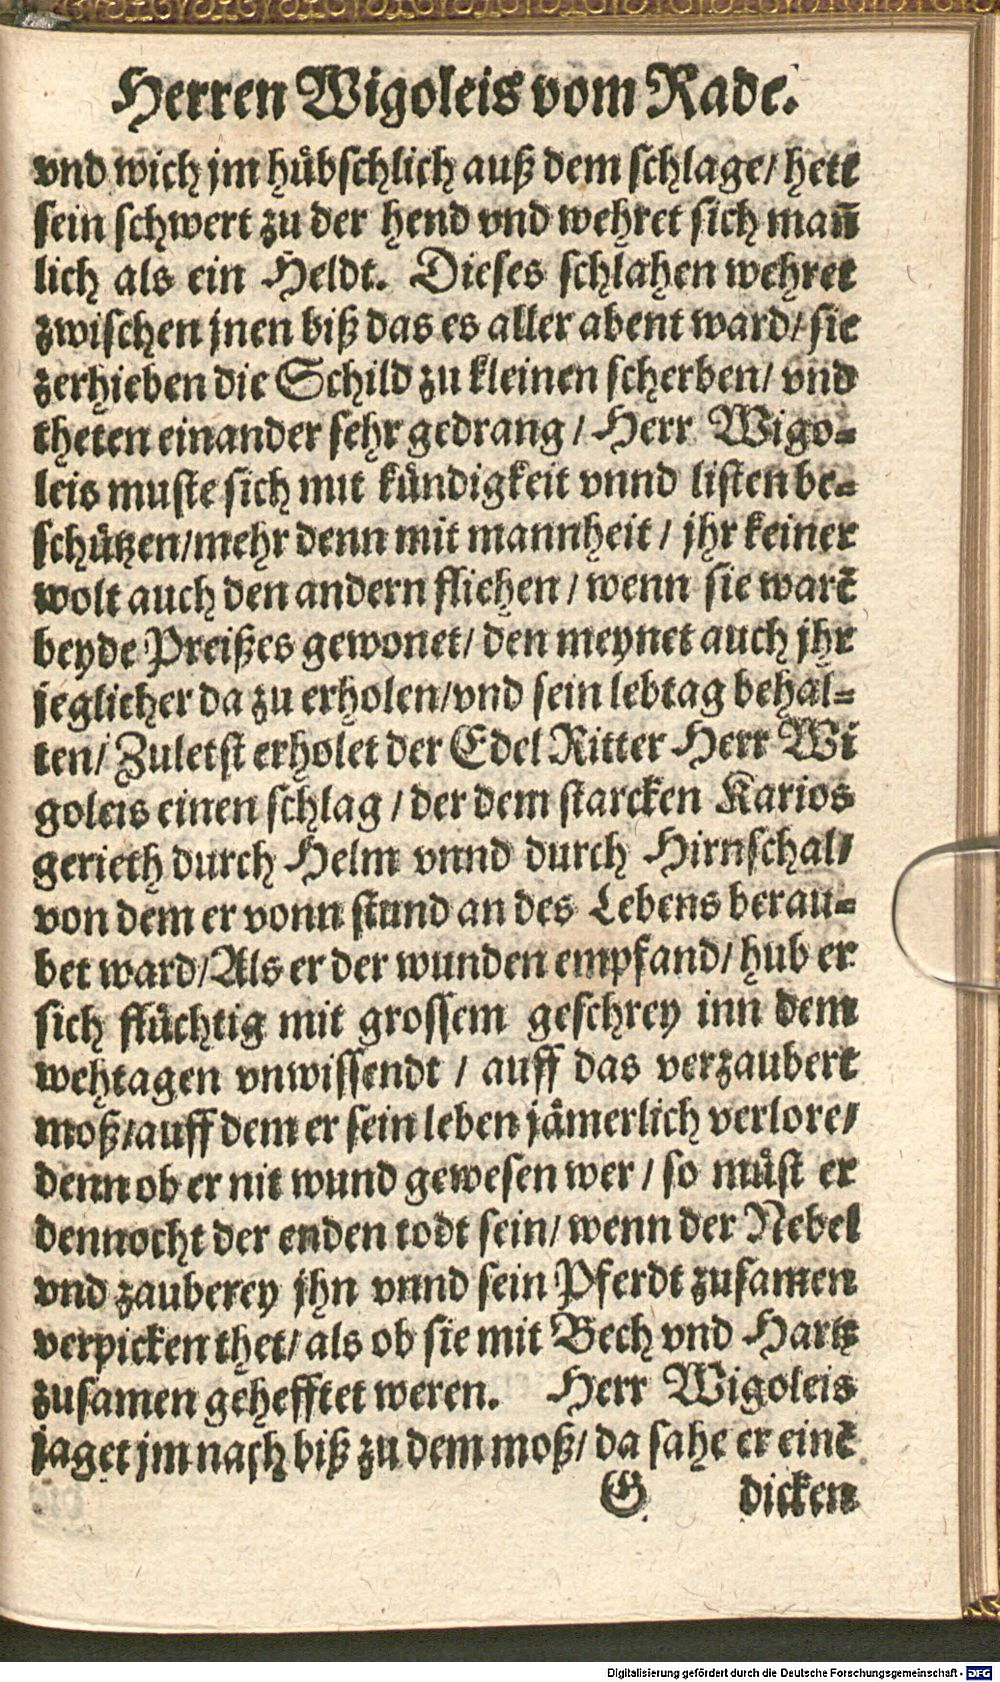 Herren Wigoleis vom Rade.
vnd wich jm hübschlich auß dem schlage/ hett
sein schwert zu der hend vnd wehret sich mañ
lich als ein Heldt. Dieses schlahen wehret
zwischen jnen biß das es aller abent ward/ sie
zerhieben die Schild zu kleinen scherben/ vnd
theten einander sehr gedrang / Herr Wigo-
leis muste sich mit kündigkeit vnnd listen be-
schützen/mehr denn mit mannheit / jhr keiner
wolt auch den andern fliehen / wenn sie warē
beyde Preißes gewonet/ den meynet auch jhr
jeglicher da zu erholen/vnd sein lebtag behal-
ten/ Zuletst erholet der Edel Ritter Herr Wi
goleis einen schlag / der dem starcken Karios
gerieth durch Helm vnnd durch Hirnschal/
von dem er vonn stund an des Lebens berau-
bet ward/Als er der wunden empfand/ hub er
sich flüchtig mit grossem geschrey inn dem
wehtagen vnwissendt / auff das verzaubert
moß/auff dem er sein leben jämerlich verlore/
denn ob er nit wund gewesen wer / so müst er
dennocht der enden todt sein/ wenn der Nebel
vnd zauberey jhn vnnd sein Pferdt zusamen
verpicken thet/ als ob sie mit Bech vnd Hartz
zusamen gehefftet weren. Herr Wigoleis
jaget jm nach biß zu dem moß/ da sahe er einē
G dicken
Digitalisierung gefördert durch die Deutsche Forschungsgemeinschaft - DFG